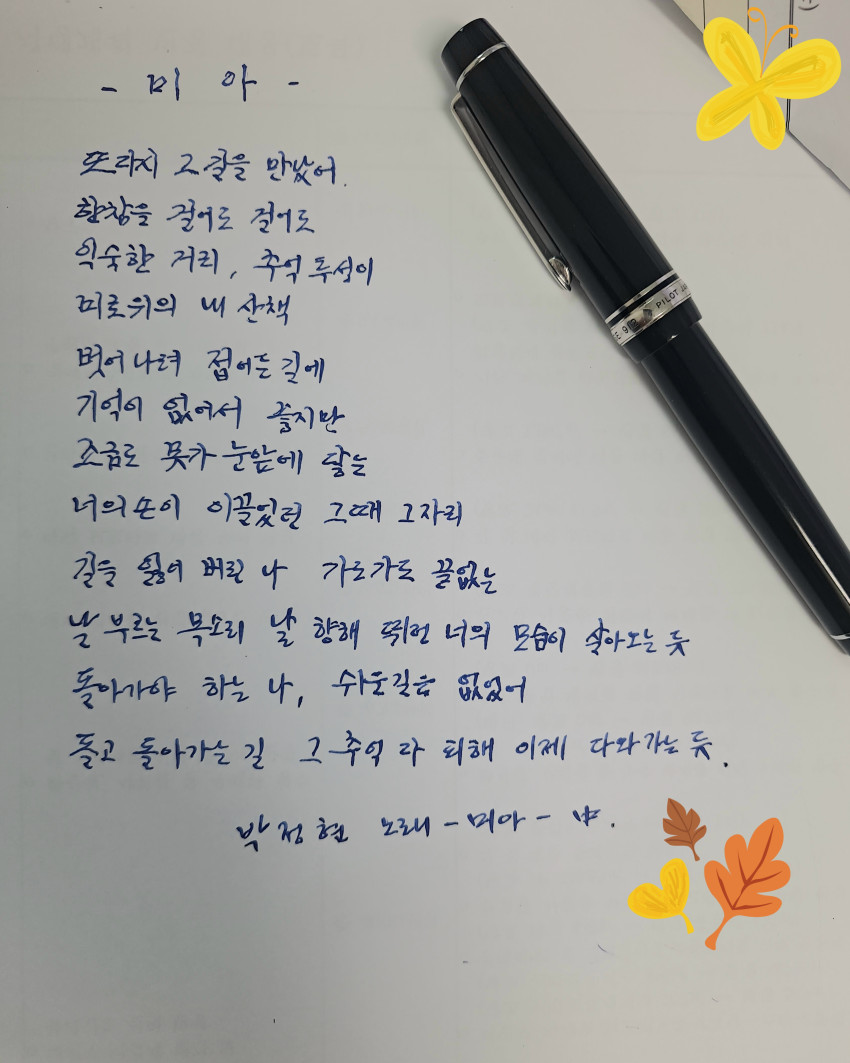 - 미 아 -
또다시 그 길을 만났어.
한참을 걸어도 걸어도
익숙한 거리, 추억투성이
미로위의 내 산책
벗어나려 접어든길에
기억이 없어서 좋지만
조금도 못가 눈앞에 닿는
너의손이 이끌었던 그때 그자리
길을 잃어 버린 나 가도가도 끝없는
날 부르는 목소리 날 향해 뛰던 너의 모습이 살아오는 듯
돌아가야 하는 나, 쉬운길은 없었어
돌고 돌아가는 길 그 추억 다 피해 이제 다와가는 듯.
박정현 노래 - 미아 - 中.
PILOT